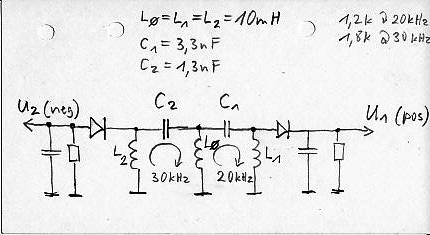 LØ=L1=L2=10mH
C1=3,3nF
C2=1,3nF
1,2k @ 20kHz
1,8k @ 30kHz
U2 (neg)
C2
C1
U1 (pos)
L2
LØ
L1
30kHz
20kHz